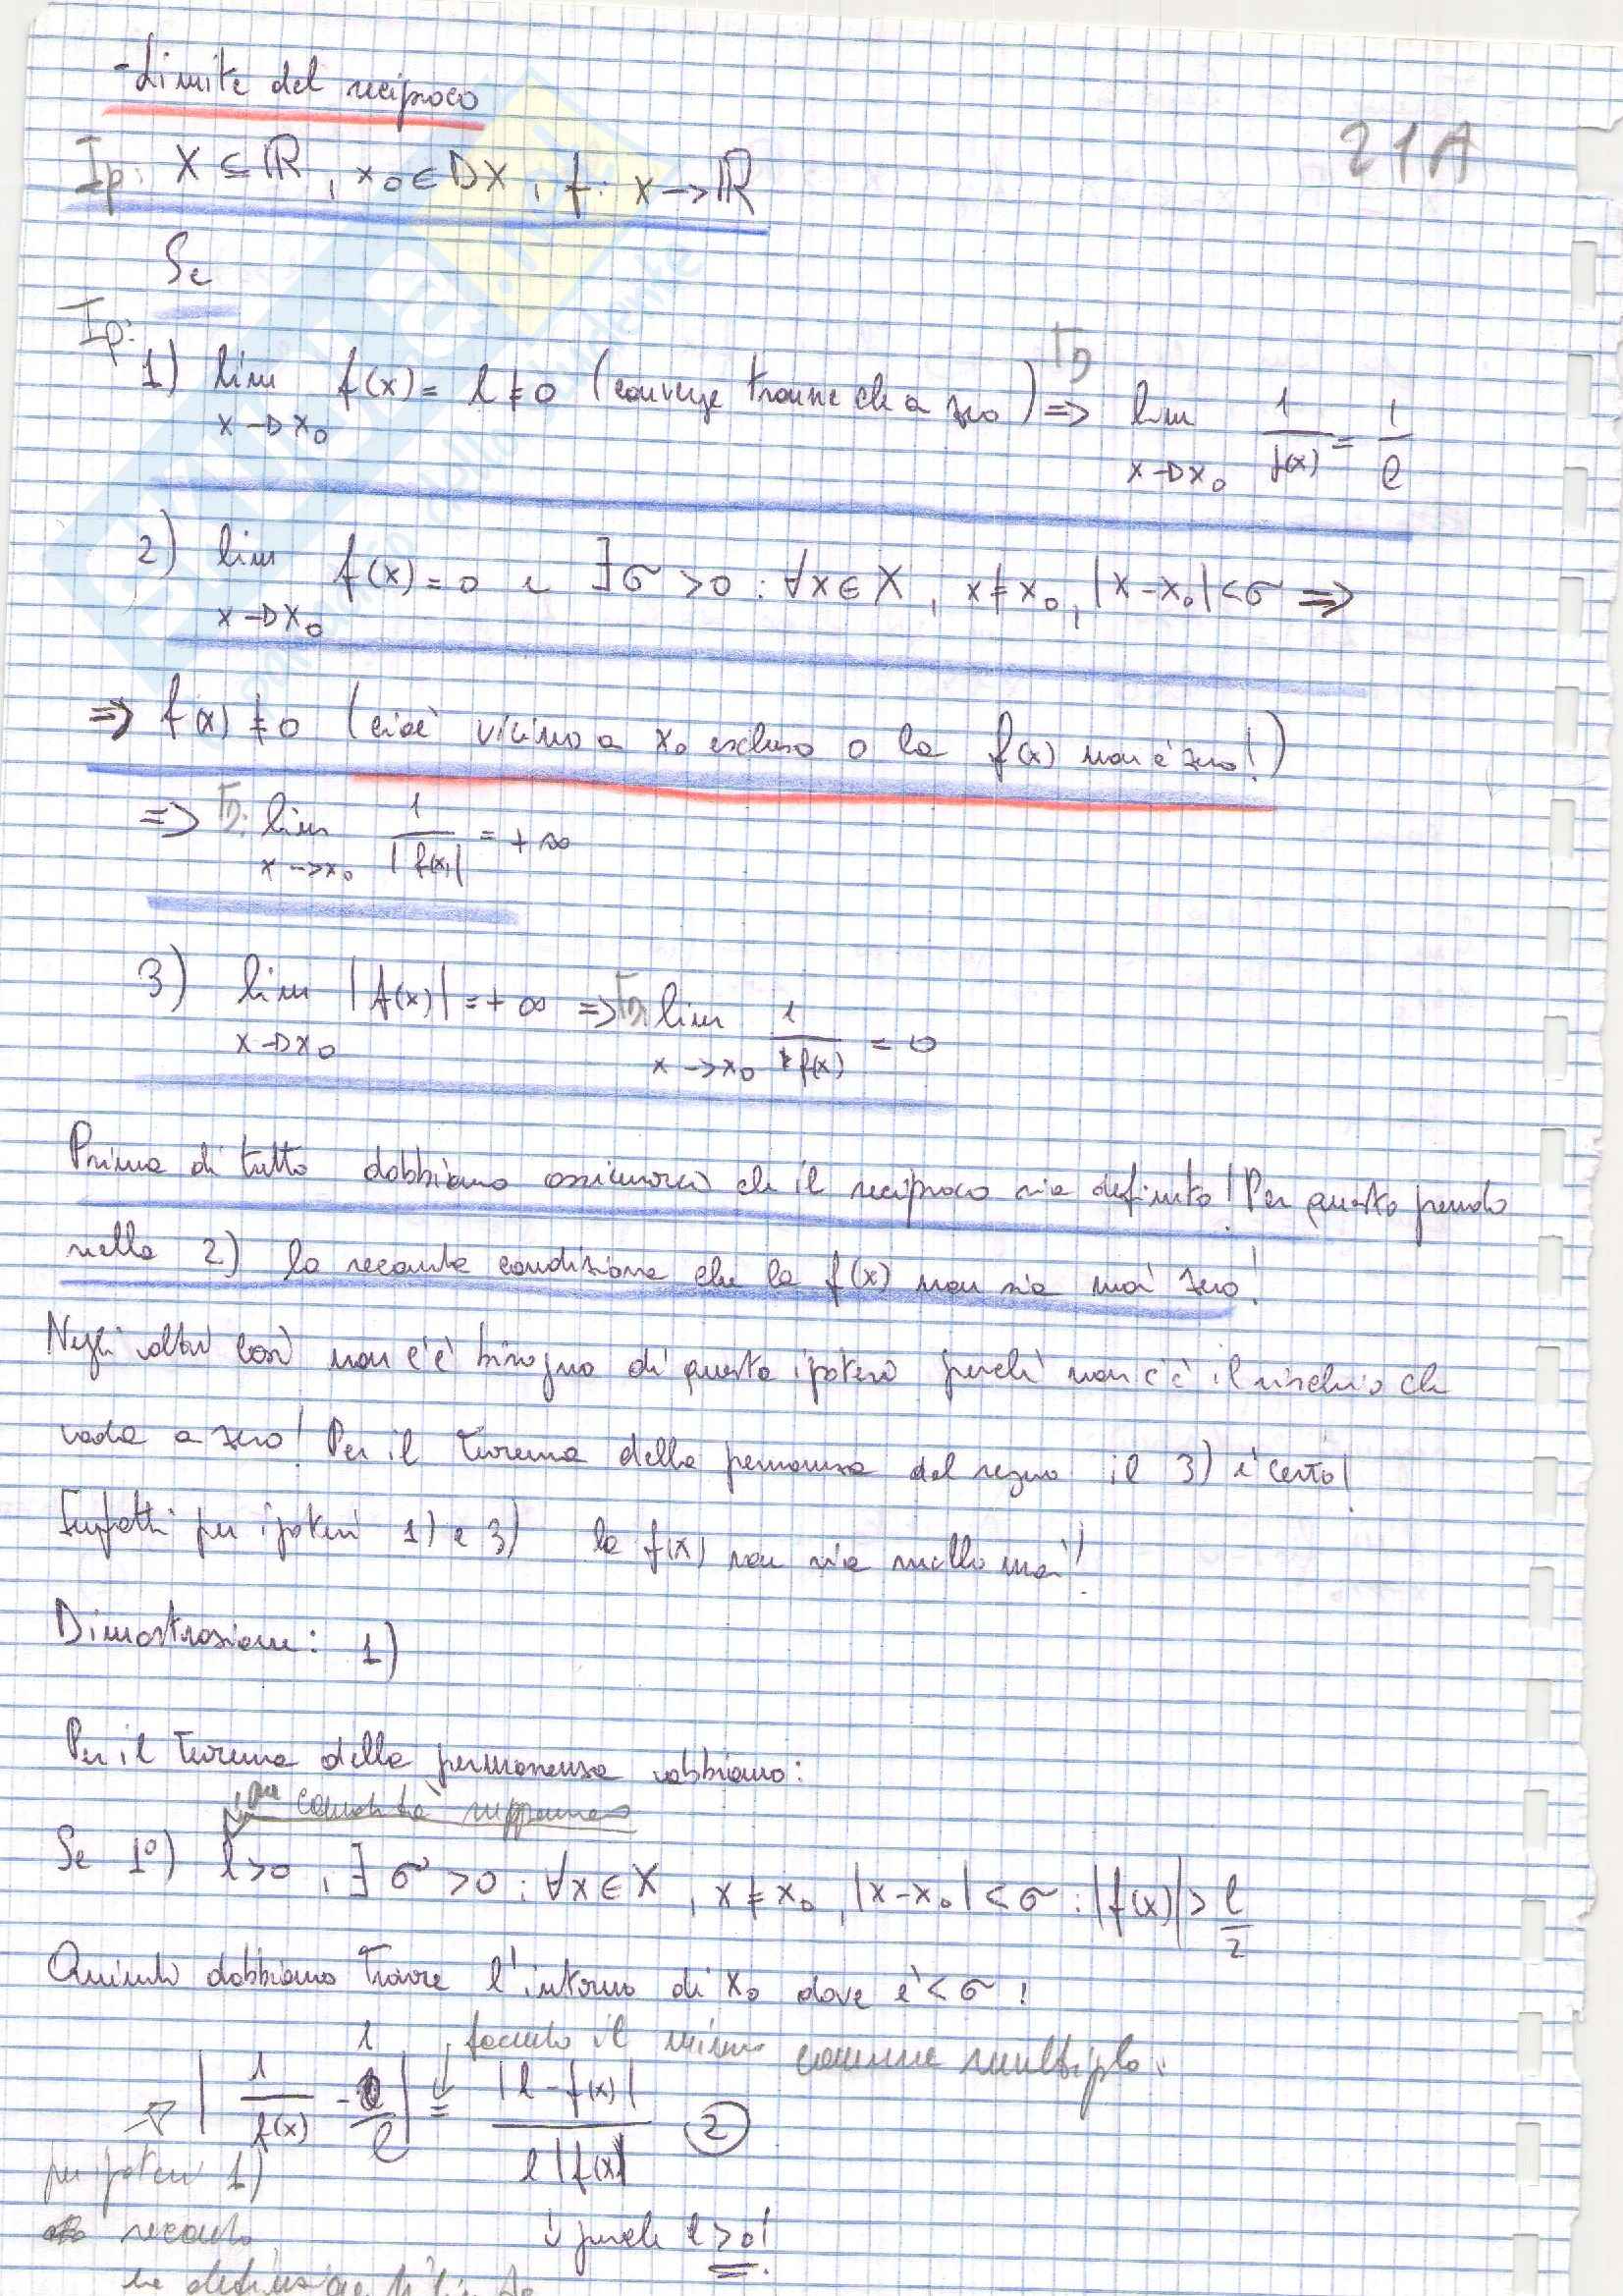 - Limite del reciproco
21A
Ip: X ⊆ ℝ, x₀ ∈ DX, f: X → ℝ
Se
Ip:
1) lim x→x₀ f(x) = l ≠ 0 (converge tranne che a zero) ⇒ TD lim x→x₀ 1/f(x) = 1/l
2) lim x→x₀ f(x) = 0 e ∃ σ > 0 : ∀x ∈ X, x ≠ x₀, |x - x₀| < σ ⇒
⇒ f(x) ≠ 0 (cioè vicino a x₀ escluso o la f(x) non è zero!)
⇒ TD: lim x→x₀ 1/|f(x)| = +∞
3) lim x→x₀ |f(x)| = +∞ ⇒ TD: lim x→x₀ 1/f(x) = 0
Prima di tutto dobbiamo assicurarci che il reciproco sia definito! Per questo prendo
nella 2) la seconda condizione che la f(x) non sia mai zero!
Negli altri casi non c'è bisogno di questa ipotesi perché non c'è il rischio che
vada a zero! Per il teorema della permanenza del segno il 3) è certo!
Infatti per ipotesi 1) e 3) la f(x) non sia nulla mai!
Dimostrazione: 1)
Per il teorema della permanenza abbiamo:
per comodità supponiamo
Se 1°) l > 0, ∃ σ > 0 : ∀x ∈ X, x ≠ x₀, |x - x₀| < σ : |f(x)| > l/2
Quindi dobbiamo trovare l'intorno di x₀ dove è < σ!
facendo il minimo comune multiplo
→ |1/f(x) - 1/l| = |l - f(x)| / l|f(x)| (2)
per ipotesi 1)
secondo
è perché l > 0!
la definizione di limite